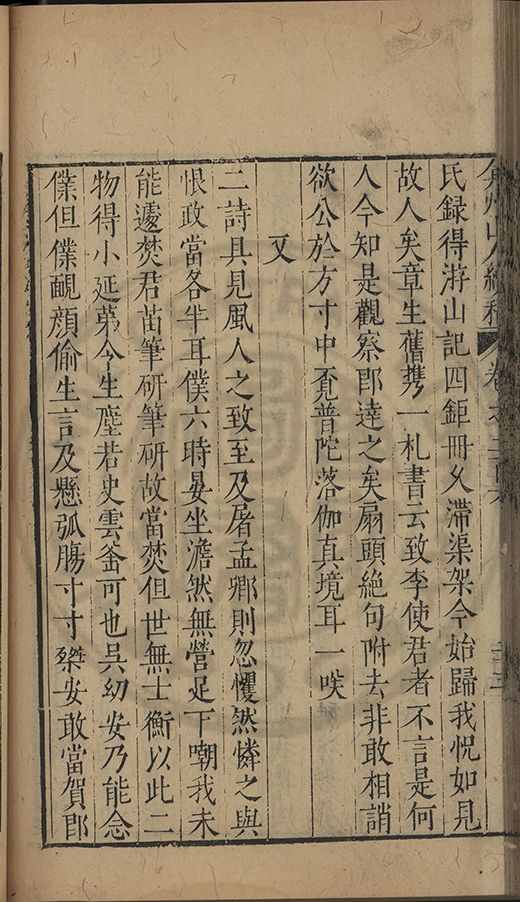 弇州山人續稿 卷之二百六
氏録得游山記四鉅冊乆滯渠架今始歸我怳如見
故人矣章生舊攜一札書云致李使君者不言是何
人今知是觀察郎達之矣扇頭絶句附去非敢相誚
欲公於方寸中覔普陀落伽真境耳一咲
又
二詩具見風人之致至及屠孟鄉則忽懼然憐之與
恨政當各半耳僕六時晏坐澹然無營足下嘲我未
能遽焚君苗筆研筆研故當焚但世無士衡以此二
物得小延第今生塵若史雲釜可也吳幼安乃能念
僕但僕靦顔偷生言及懸弧膓寸寸磔安敢當賀郎